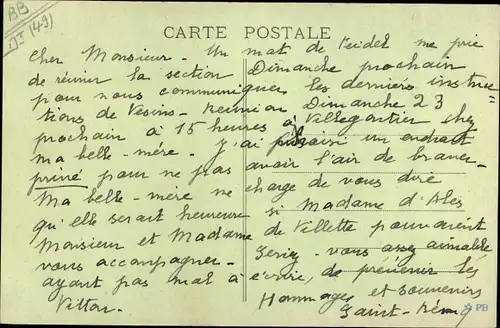 BB
DT (49)
CARTE POSTALE
Cher Monsieur - Un mot de me prie
de réunir la section Dimanche prochain
pour nous communiquer les derniers instruc=
tions de Vesins - Réunion Dimanche 23
prochain à 15 heures à Villegontier chez
ma belle-mère. J'ai choisi un endroit
privé pour ne pas avoir l'air de braver -
Ma belle-mère me charge de vous dire
qu'elle serait heureuse si Madame d'Alès
Monsieur et Madame de Villette pouvaient
vous accompagner - Seriez-vous assez aimable
ayant pas mal à écrire, de prévenir les
Hommages et souvenirs
Saint-Rémy
PB